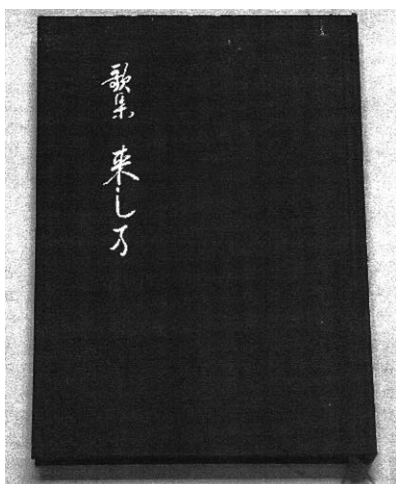 歌集 来し方